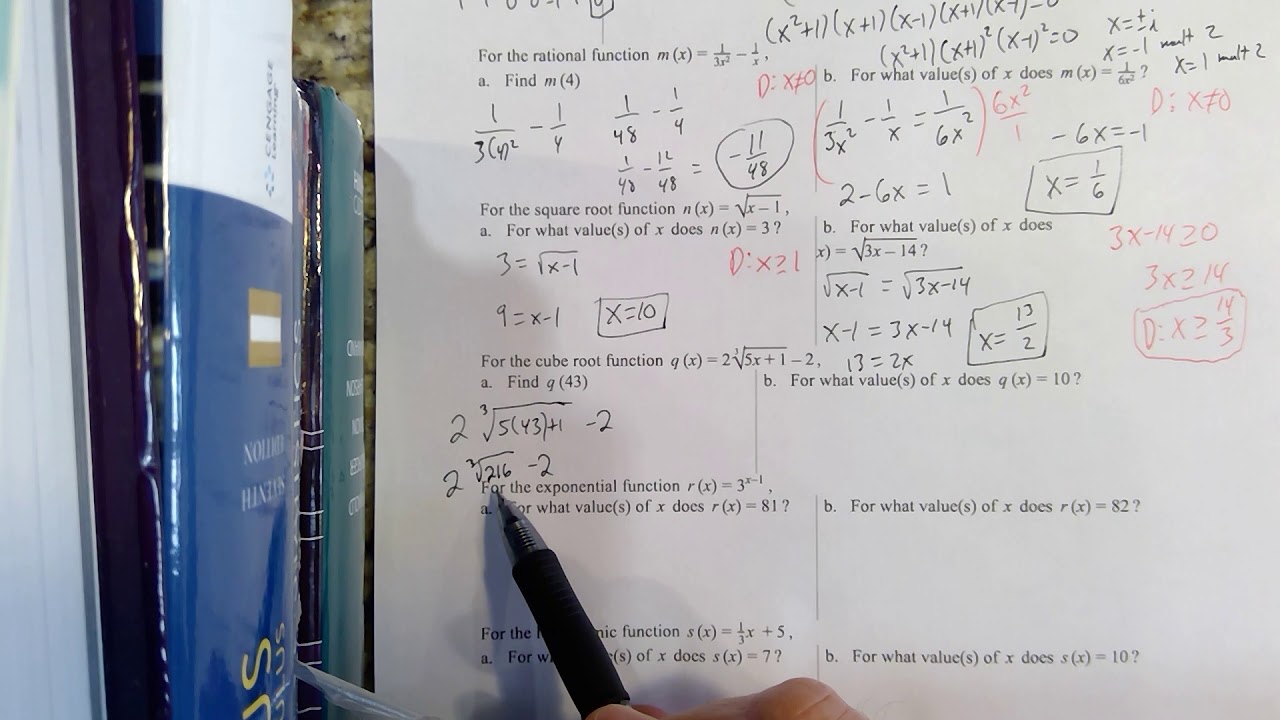 (x²+1)(x+1)(x-1)(x+1)(x-1)=0
(x²+1)(x+1)²(x-1)²=0
x=±i
x=-1 mult 2
x=1 mult 2
For the rational function m(x) = 1/3x² − 1/x,
a. Find m(4)
D: x≠0
1/3(4)² - 1/4
1/48 - 1/4
1/48 - 12/48 = -11/48
b. For what value(s) of x does m(x) = 1/6x² ?
D: x≠0
(1/3x² - 1/x = 1/6x²) 6x²/1
2-6x=1
-6x=-1
x=1/6
For the square root function n(x) = √x−1,
a. For what value(s) of x does n(x) = 3?
3=√x-1
D: x≥1
9=x-1
x=10
b. For what value(s) of x does
x) = √3x−14?
√x-1 = √3x-14
x-1=3x-14
13=2x
x=13/2
3x-14≥0
3x≥14
D: x≥14/3
For the cube root function q(x) = 2∛5x+1 − 2,
a. Find q(43)
2 ∛5(43)+1 -2
2 ∛216 -2
b. For what value(s) of x does q(x) = 10?
For the exponential function r(x) = 3ˣ⁻¹,
a. For what value(s) of x does r(x) = 81?
b. For what value(s) of x does r(x) = 82?
For the function s(x) = 1/3x + 5,
a. For of x does s(x) = 7?
b. For what value(s) of x does s(x) = 10?
CENGAGE
Learning
EDITION
SEVENTH
US
ULUS